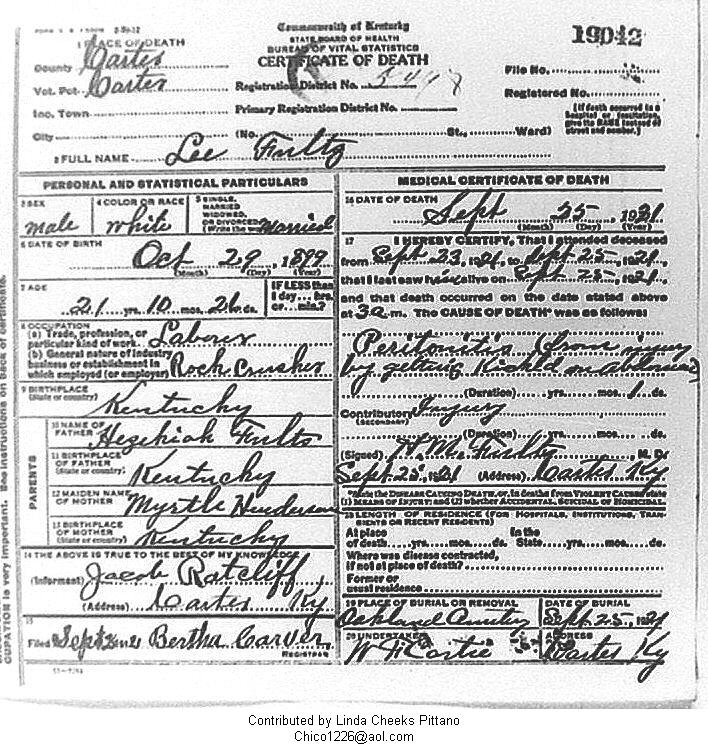 Commonwealth of Kentucky
STATE BOARD OF HEALTH
BUREAU OF VITAL STATISTICS
CERTIFICATE OF DEATH
19042
1 PLACE OF DEATH
County Carter
Vot. Pct. Carter
Inc. Town
City
Registration District No.
Primary Registration District No.
(No. St., Ward)
File No.
Registered No.
[If death occurred in a hospital or institution, give its NAME instead of street and number.]
2 FULL NAME Lee Fultz
PERSONAL AND STATISTICAL PARTICULARS
3 SEX
male
4 COLOR OR RACE
White
5 SINGLE, MARRIED WIDOWED, OR DIVORCED (Write the word)
Married
6 DATE OF BIRTH
Oct 29, 1899
(Month) (Day) (Year)
7 AGE
21 yrs. 10 mos. 26 ds.
IF LESS than 1 day... hrs. or... min.?
8 OCCUPATION
(a) Trade, profession, or particular kind of work Laborer
(b) General nature of industry business or establishment in which employed (or employer) Rock Crusher
9 BIRTHPLACE
(State or country) Kentucky
PARENTS
10 NAME OF FATHER Hezekiah Fults
11 BIRTHPLACE OF FATHER (State or country) Kentucky
12 MAIDEN NAME OF MOTHER Myrtle Henderson
13 BIRTHPLACE OF MOTHER (State or country) Kentucky
14 THE ABOVE IS TRUE TO THE BEST OF MY KNOWLEDGE
(Informant) Jacob Ratcliff
(Address) Carter Ky
15
Filed Sept Bertha Carver
REGISTRAR
MEDICAL CERTIFICATE OF DEATH
16 DATE OF DEATH
Sept 25, 1921
(Month) (Day) (Year)
17 I HEREBY CERTIFY, That I attended deceased
from Sept 23, 1921, to Sept 25, 1921,
that I last saw him alive on Sept 25, 1921,
and that death occurred on the date stated above
at 3 a m. The CAUSE OF DEATH* was as follows
Peritonitis (from injury
by getting Kicked on abdomen)
(Duration) yrs. mos. 1 ds.
Contributory Injury
(SECONDARY)
(Duration) yrs. mos. ds.
(Signed) M. D.
Sept 25, 1921 (Address) Carter Ky
*State the DISEASE CAUSING DEATH, or, in deaths from VIOLENT CAUSES state (1) MEANS OF INJURY; and (2) whether ACCIDENTAL, SUICIDAL OR HOMICIDAL.
18 LENGTH OF RESIDENCE (FOR HOSPITALS, INSTITUTIONS, TRANSIENTS OR RECENT RESIDENTS)
At place of death yrs. mos. ds. In the State yrs. mos. ds.
Where was disease contracted, if not at place of death?
Former or usual residence
19 PLACE OF BURIAL OR REMOVAL
Oakland
DATE OF BURIAL
Sept 25, 1921
20 UNDERTAKER
ADDRESS
Carter Ky
CUPATION is very important. See instructions on back of certificate.
Contributed by Linda Cheeks Pittano
Chico1226@aol.com